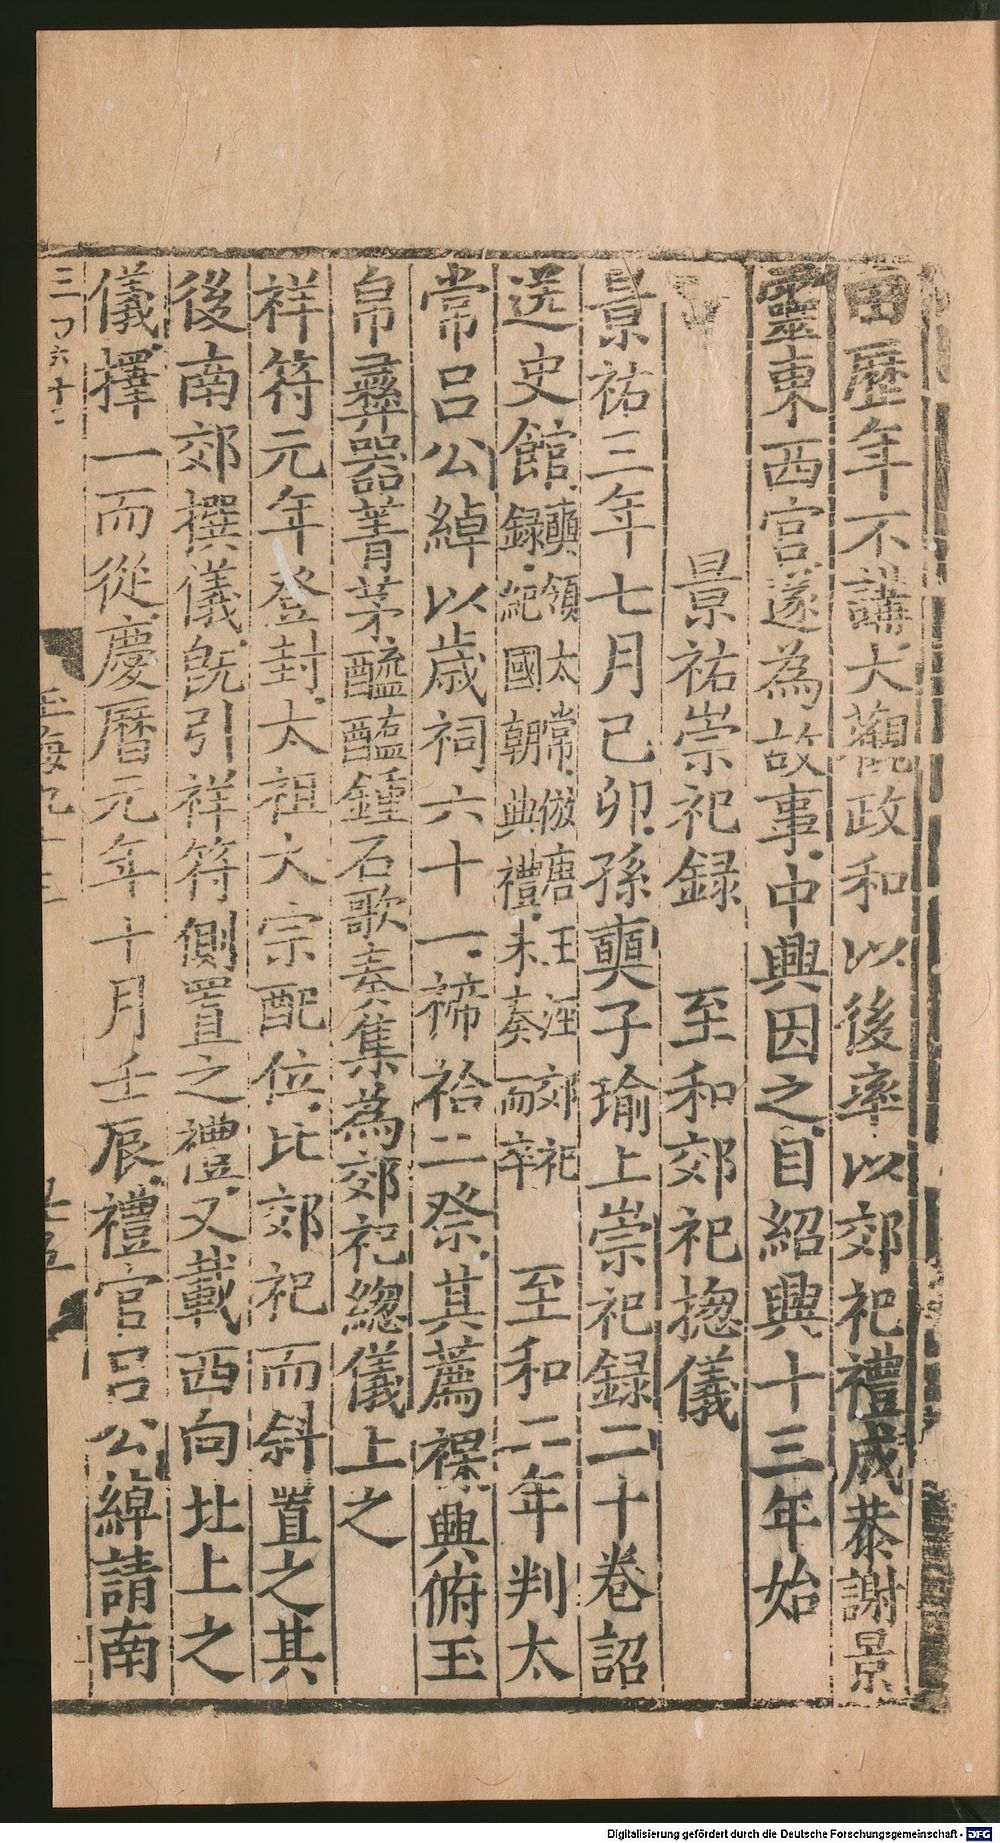 田歷年不講大觀政和以後率以郊祀禮成恭謝景
靈東西宮遂為故事中興因之自紹興十三年始
景祐崇祀録　至和郊祀揔儀
景祐三年七月己卯孫奭子瑜上崇祀録二十卷詔
送史館奭領太常倣唐王涇郊祀録紀國朝典禮未奏而卒　至和二年判太
常呂公綽以歲祠六十一禘祫二祭其薦祼興俯玉
帛彝器菁茅醯醢鍾石歌奏集為郊祀緫儀上之
祥符元年登封太祖大宗配位比郊祀而斜置之其
後南郊撰儀旣引祥符側置之禮又載西向北上之
儀擇一而從慶曆元年十月壬辰禮官呂公綽請南
玉海九十三
Digitalisierung gefördert durch die Deutsche Forschungsgemeinschaft - DFG